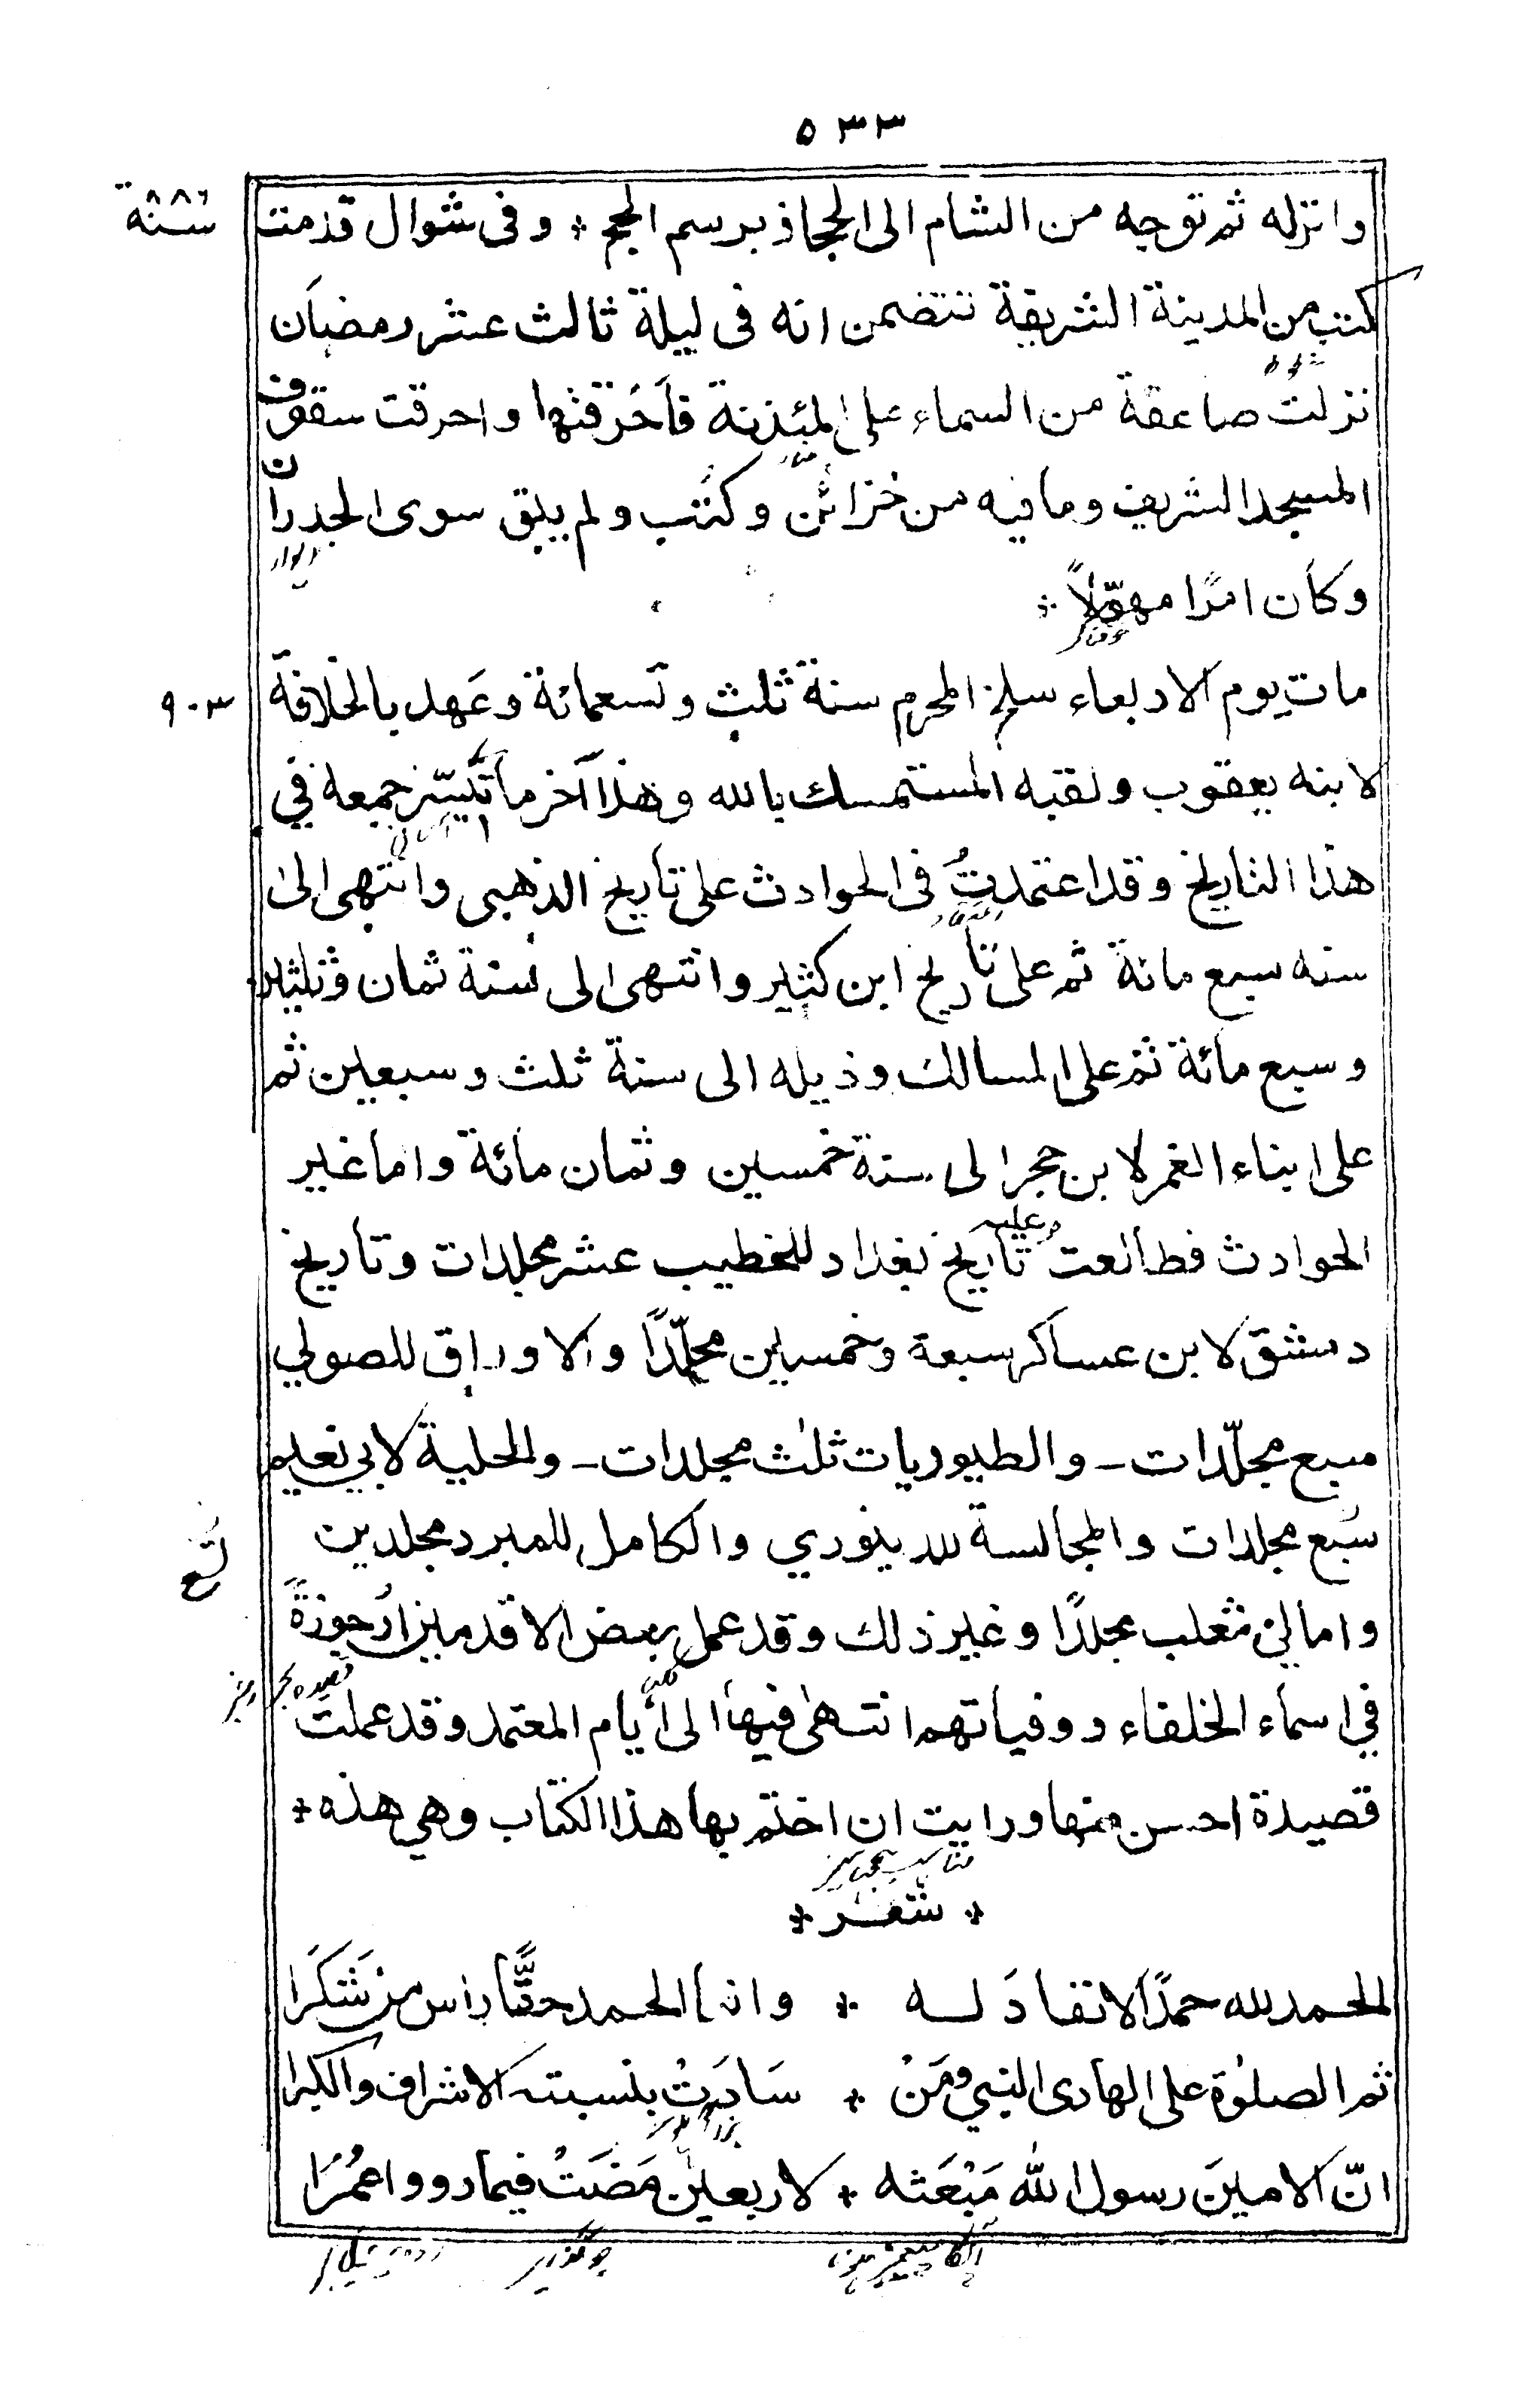 ٥٣٣
وانزله ثم توجه من الشام الى الحجاز برسم الحج * وفى شوال قدمت
سنة ٨٨٦
كتب من المدينة الشريفة تتضمن انه فى ليلة ثالث عشر رمضان
نزلت صاعقة من السماء على المئذنة فأحرقتها واحرقت سقوف
المسجد الشريف وما فيه من خزائن وكتب ولم يبق سوى الجدران
وكان امرًا مهولاً *
مات يوم الاربعاء سلخ المحرم سنة ثلث وتسعمائة وعهد بالخلافة
٩٠٣
لابنه يعقوب ولقبه المستمسك بالله وهذا آخر ما تيسّر جمعه في
هذا التاريخ وقد اعتمدتُ فى الحوادث على تاريخ الذهبى وانتهى الى
سنه سبع مائة ثم على تاريخ ابن كثير وانتهى الى سنة ثمان وثلثين
وسبع مائة ثم على المسالك وذيله الى سنة ثلث وسبعين ثم
على انباء الغمر لابن حجر الى سنة خمسين وثمان مائة واما غير
الحوادث فطالعت عليه تاريخ بغداد للخطيب عشر مجلدات وتاريخ
دمشق لابن عساكر سبعة وخمسين مجلّدًا والاوراق للصولي
سبع مجلّدات - والطيوريات ثلث مجلدات - والحلية لابي نعيم
سبع مجلدات والمجالسة للدينوري والكامل للمبرد مجلدين
تسع
وامالى ثعلب مجلدًا وغير ذلك وقد عمل بعض الاقدمين ارجوزة
في اسماء الخلفاء ووفياتهم انتهى فيها الى أيام المعتمد وقد عملت
قصيدة احسن منها ورايت ان اختم بها هذا الكتاب وهي هذه *
* شعر *
الحمد لله حمدًا لانفادَ له * وانما الحمد حقًّا راس من شَكَرَا
ثم الصلوٰة على الهادى النبي ومَنْ * سَادَتْ بنسبته الاشراف والكبرا
انّ الامينَ رسول الله مَبْعَثه * لاربعين مَضَتْ فيما رووا عُمُرًا